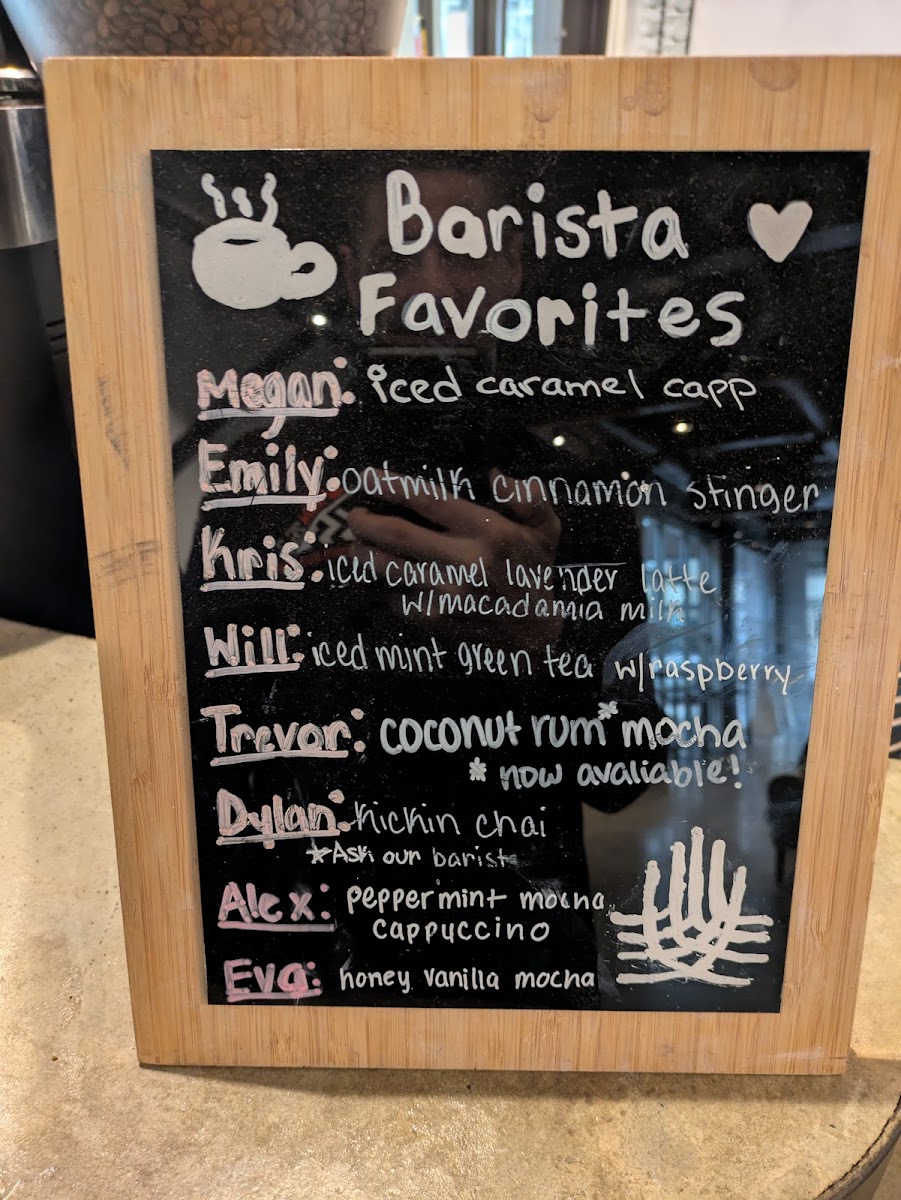 Barista
Favorites
Megan: iced caramel capp
Emily: oatmilk cinnamon stinger
Kris: iced caramel lavender latte
w/macadamia milk
Will: iced mint green tea w/raspberry
Trevor: coconut rum* mocha
* now avaliable!
Dylan: kickin chai
*Ask our barist
Alex: peppermint mocha
cappuccino
Eva: honey vanilla mocha